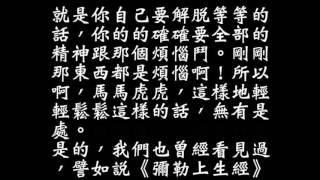 就是你自己要解脫等等的
話，你的的確確要全部的
精神跟那個煩惱鬥。剛剛
那東西都是煩惱啊！所以
啊，馬馬虎虎，這樣地輕
輕鬆鬆這樣的話，無有是
處。
是的，我們也曾經看見過，
譬如說《彌勒上生經》